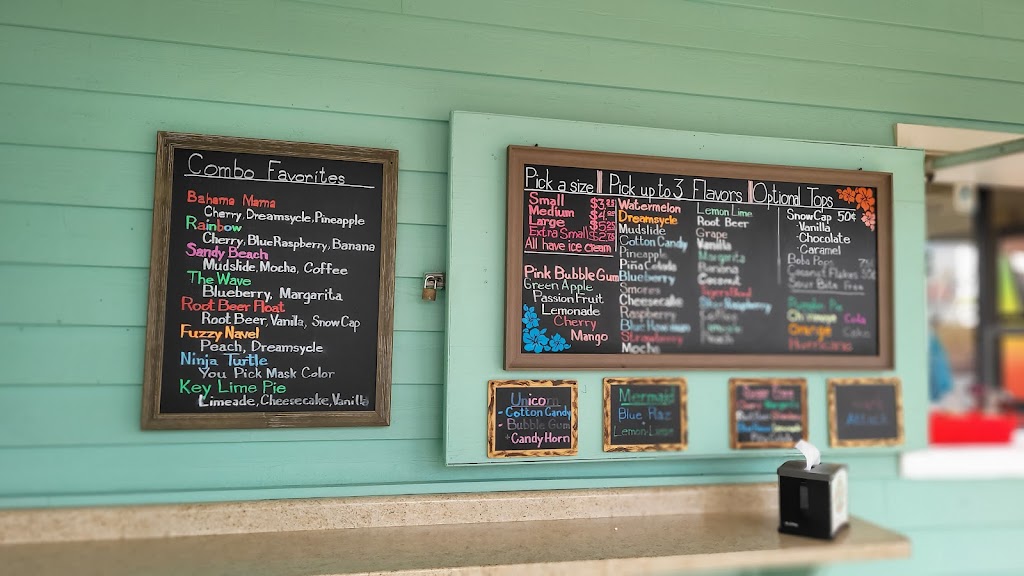 Combo Favorites
Bahama Mama
Cherry, Dreamsycle, Pineapple
Rainbow
Cherry, Blue Raspberry, Banana
Sandy Beach
Mudslide, Mocha, Coffee
The Wave
Blueberry, Margarita
Root Beer Float
Root Beer, Vanilla, Snow Cap
Fuzzy Navel
Peach, Dreamsycle
Ninja Turtle
You Pick Mask Color
Key Lime Pie
Limeade, Cheesecake, Vanilla
Pick a size
Small
Medium
Large
Extra Small
All have ice cream
Pink Bubble Gum
Green Apple
Passion Fruit
Lemonade
Cherry
Mango
Pick up to 3 Flavors
Watermelon
Dreamsycle
Mudslide
Cotton Candy
Pineapple
Pina Colada
Blueberry
Smores
Cheesecake
Raspberry
Blue Hawaiian
Strawberry
Mocha
Lemon Lime
Root Beer
Grape
Vanilla
Margarita
Banana
Coconut
Tigers Blood
Blue Raspberry
Coffee
Limeade
Peach
Optional Tops
Snow Cap 50¢
- Vanilla
- Chocolate
- Caramel
Coconut Flakes
Free
Orange
Hurricane
Unicorn
- Cotton Candy
- Bubble Gum
* Candy Horn
Mermaid
Blue Raz
Lemon Lime
Attack